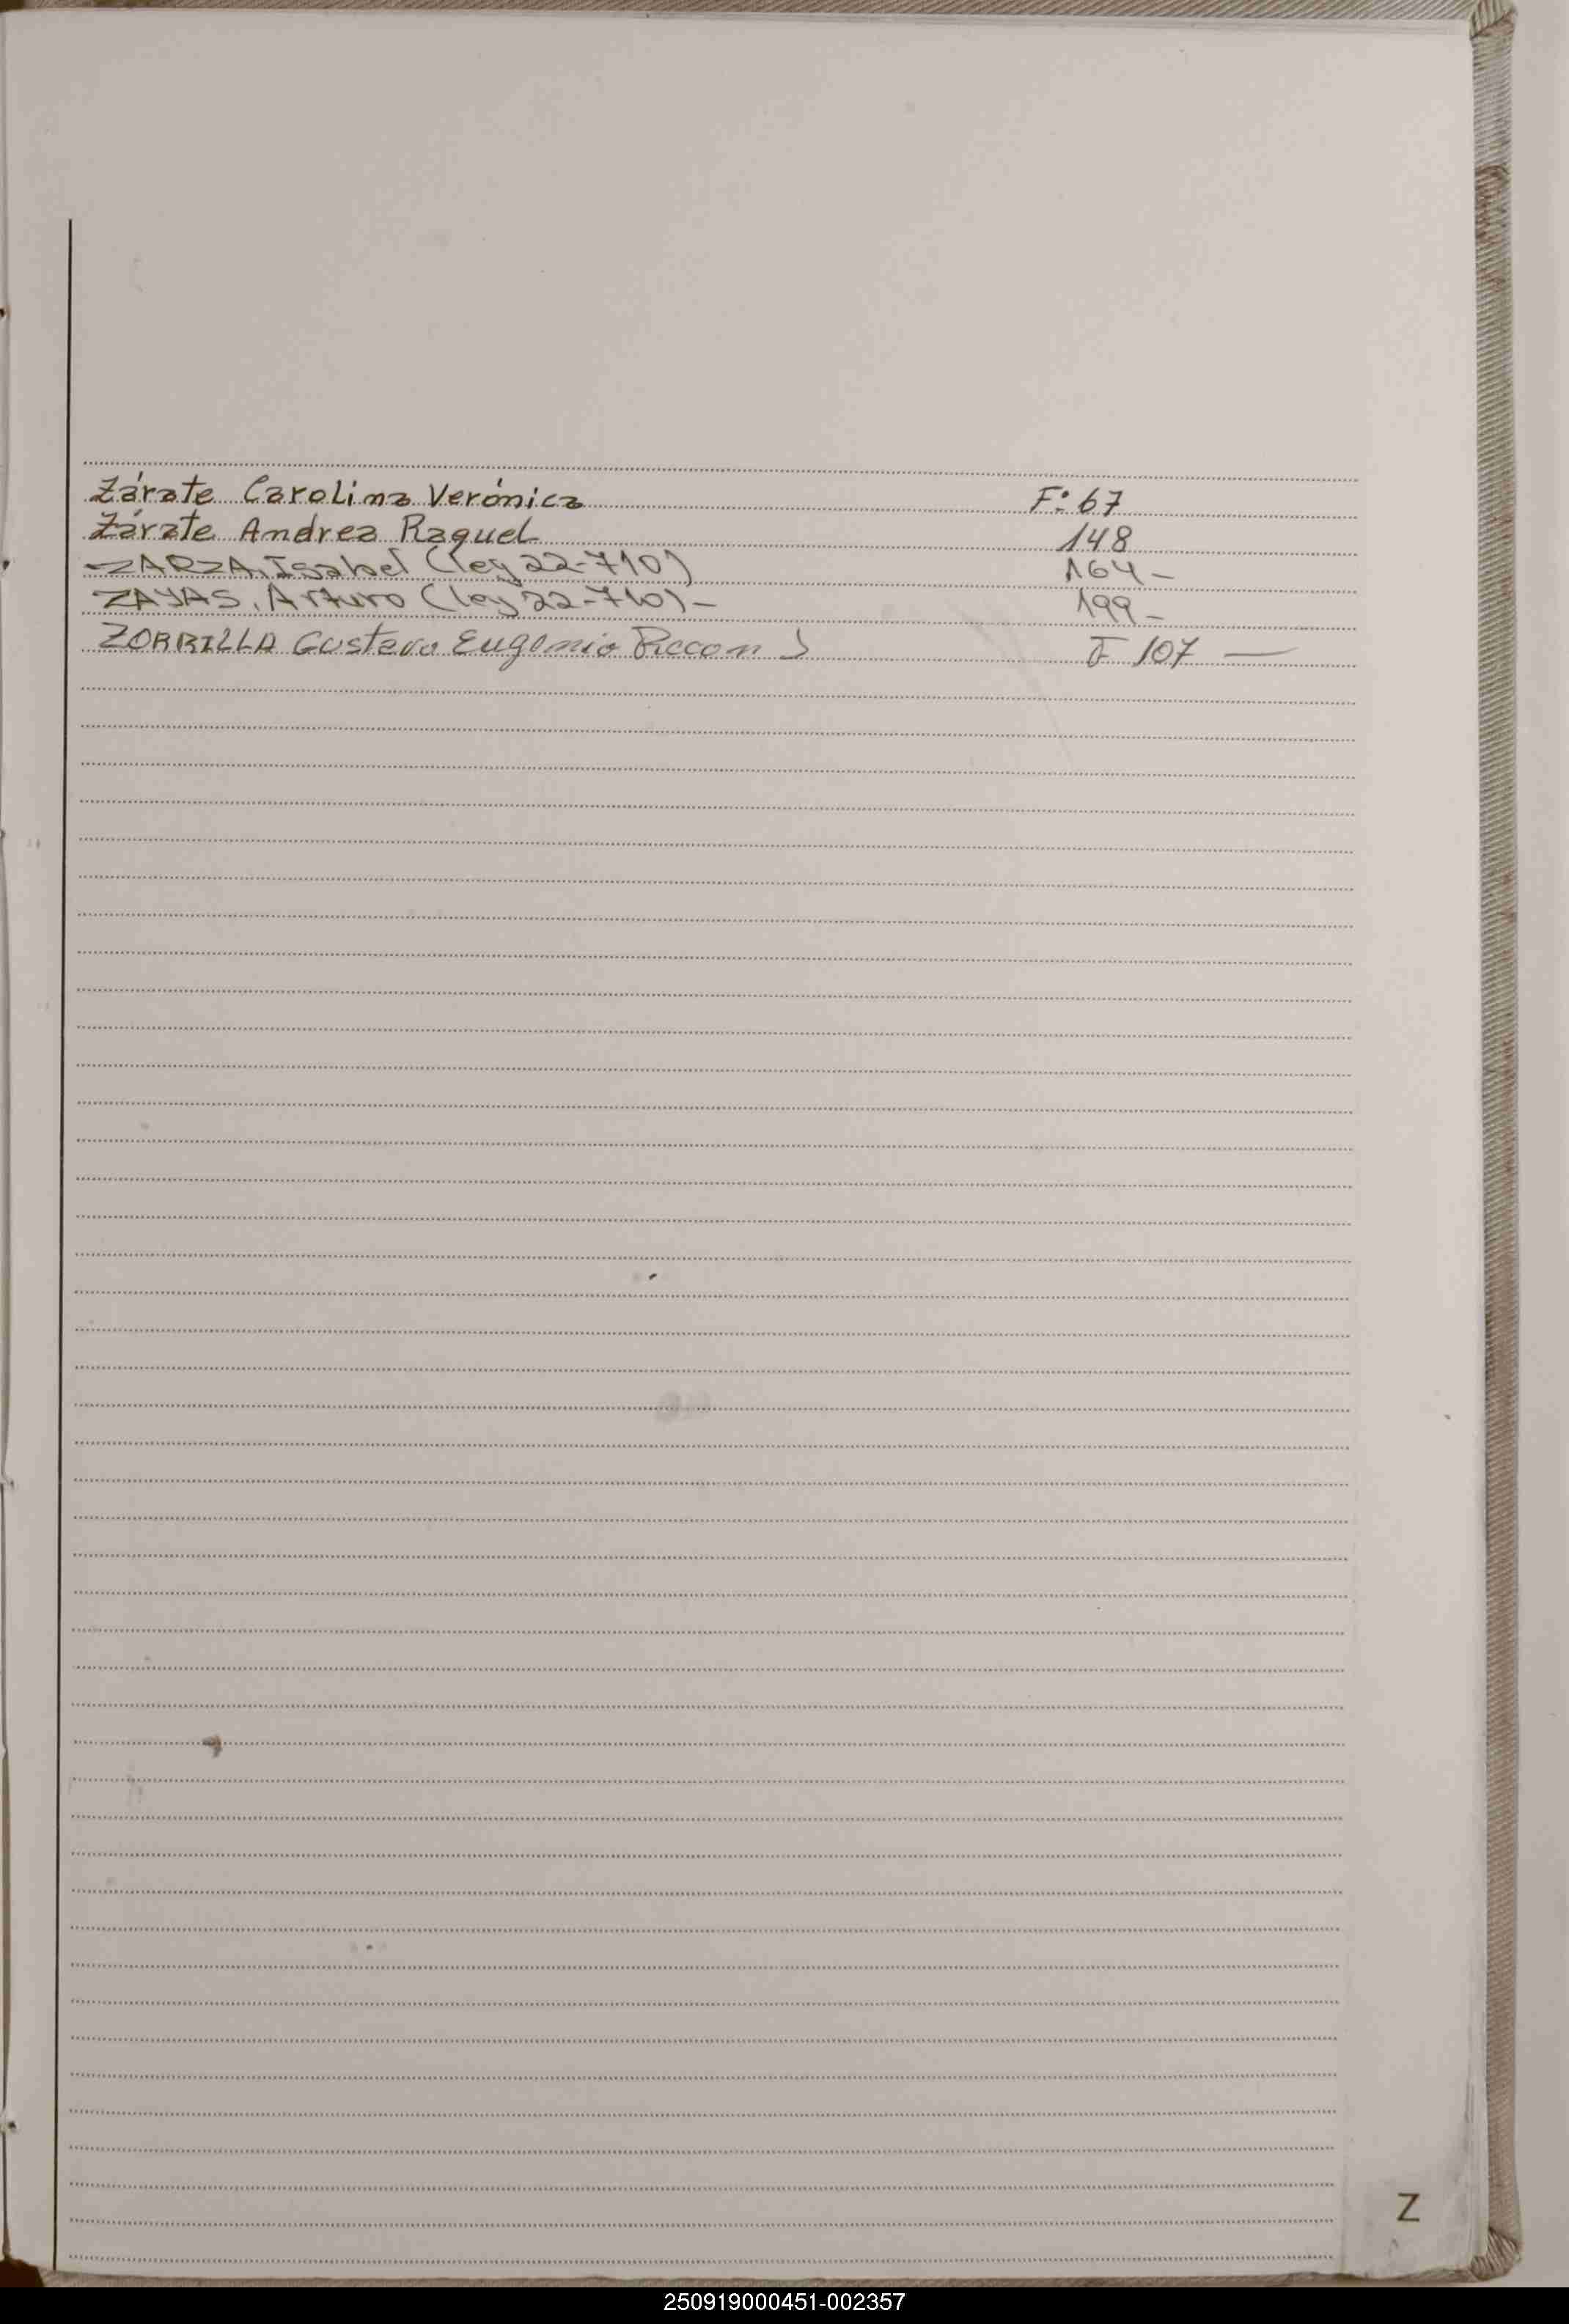 Zárate Carolina Verónica F: 67
Zárate Andrea Raquel 148
ZARZA, Isabel (ley 22-710) 164-
ZAYAS, Arturo (ley 22-710)- 199-
ZORRILLA Gustavo Eugenio F 107 —
Z
250919000451-002357